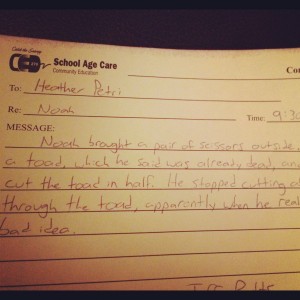 School Age Care
Community Education
To: Heather Petri
Re: Noah Time: 9:30
MESSAGE:
Noah brought a pair of scissors outside,
a toad, which he said was already dead, an
cut the toad in half. He stopped cutting
through the toad, apparently when he real
bad idea.